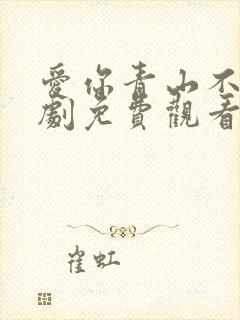 愛你青山不
劇免費觀看
崔虹